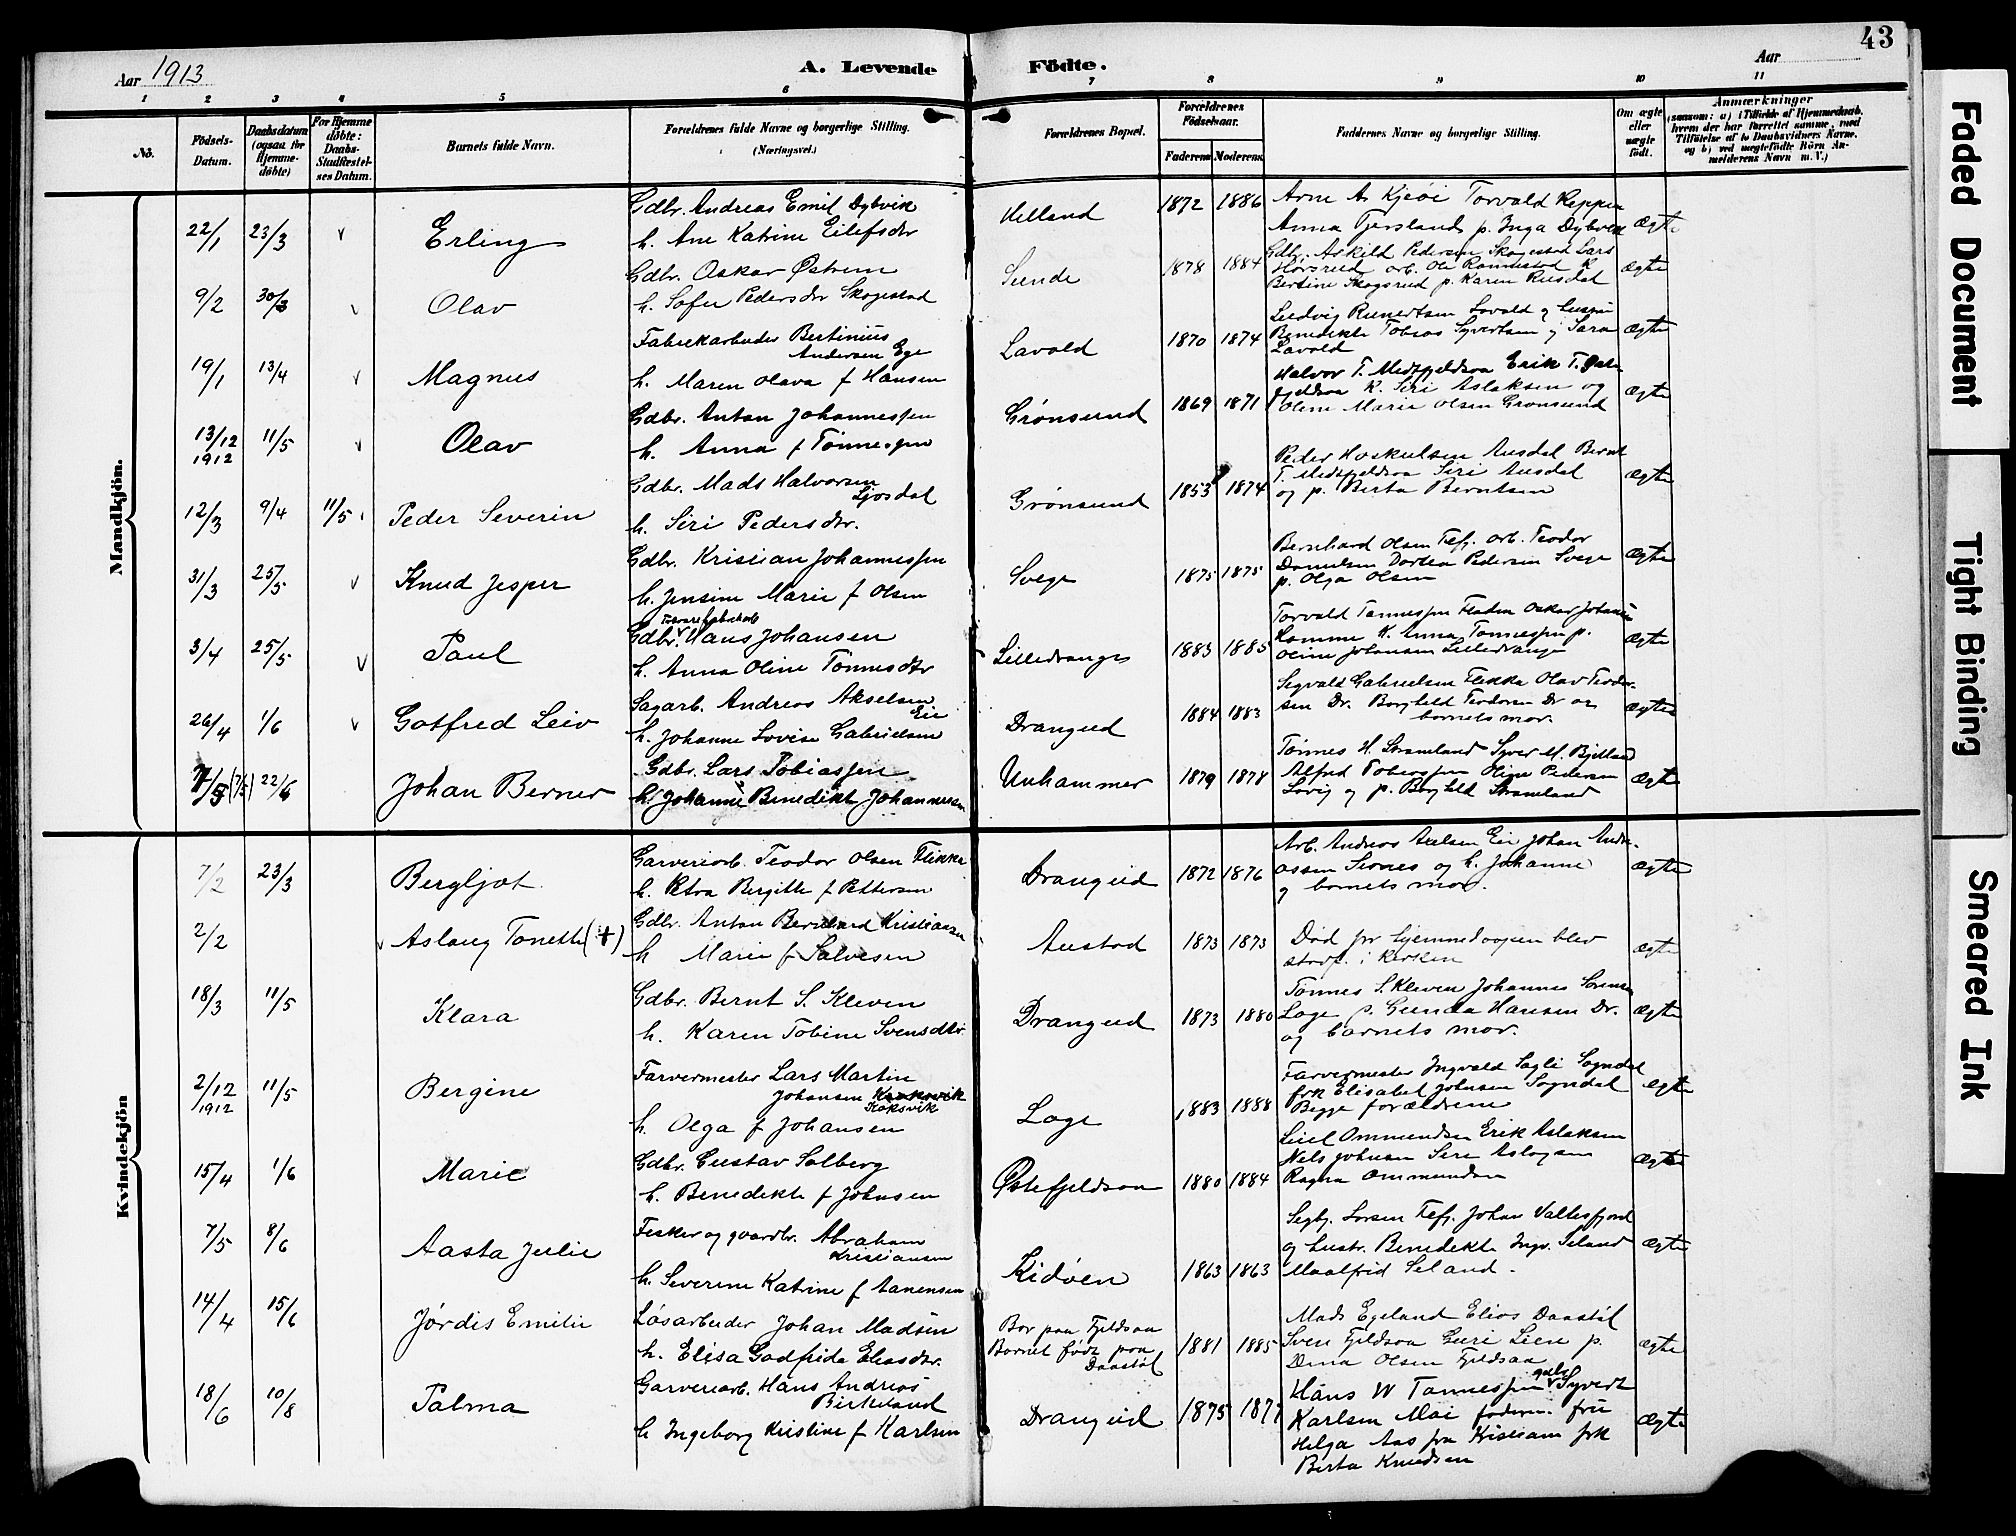 43
Aar 1913
A. Levende Födte.
Aar
1 2 3 4 5 6 7 8 9 10 11
No.
Födsels-Datum.
Daabsdatum (ogsaa for Hjemme-döbte)
For Hjemme döbte: Daabs-Stadfæstel-ses Datum.
Barnets fulde Navn.
Forældrenes fulde Navne og borgerlige Stilling. (Næringsvei.)
Forældrenes Bopæl.
Forældrenes Födselsaar.
Faderens Moderens
Faddernes Navne og borgerlige Stilling.
Om ægte eller uægte födt.
Anmærkninger
(saasom: a) i Tilfælde af Hjemmedaab, hvem der har forrettet samme, med Tilföielse af to Daabsvidners Navne, og b) ved uægtefödte Börn Anmelderens Navn m. V.)
Mandkjön.
22/1 23/3 Erling
Gdbr. Andreas Emil Dybvik
h. Ane Katrine Eilefsdtr
Helland 1872 1886
Arne A. Kjeøi Torvald Keppen
Anna Tjersland p. Inga Dybvik
ægte
9/2 30/3 Olav
Gdbr. Oskar Østrem
h. Sofie Pedersdtr Skogestad
Sunde 1878 1884
Gdbr. Askild Pedersen Skogestad Lars
Bertine Skogsrud p. Karen Rusdal
ægte
19/1 13/4 Magnus
Fabrikarbeider Bertinius
Andersen Ege
h. Maren Olava f Hansen
Lavold 1870 1874
Ludvig Runertsen Lavold og hustru
Benedikte Tobias Syvertsen og Sara
Lavold
ægte
13/12 1912 11/5 Olav
Gdbr. Anton Johannessen
h. Anna f Tønnessen
Grønsund 1869 1871
Halvor T. Midtfjeldsaa Erik T. Øste
fjeldsaa K. Siri Aslaksen og
Oline Marie Olsen Grønsund
ægte
12/3 9/4 11/5 Peder Severin
Gdbr. Mads Halvorsen
Ljosdal
h. Siri Pedersdtr.
Grønsund 1853 1874
Peder Hoskulsen Ausdal Bernt
T. Midtfjeldsaa Siri Ausdal
og p. Berta Berntsen
ægte
31/3 25/5 Knud Jesper
Gdbr. Kristian Johannessen
h. Jensine Marie f Olsen
Svege 1875 1875
Bernhard Olsen Fefj. arb. Teodor
Danielsen Dortea Pedersen Svege
p. Olga Olsen
ægte
3/4 25/5 Paul
Gdbr. Hans Johansen
h. Anna Oline Tønnesdtr
Lilledrange 1883 1885
Torvald Tønnessen Fladen Oskar Johansen
Homme K. Anna Tønnessen p.
Oline Johansen Lilledrange
ægte
26/4 1/6 Gotfred Leiv
Sagarb. Andreas Akselsen
Eie
h. Johanne Lovise Gabrielsen
Drangeid 1884 1883
Segvald Gabrielsen Flikka Olav Teodor-
sen Dr. Borghild Teodorsen Dr og
barnets mor.
ægte
(7/5) 22/6 Johan Berner
Gdbr. Lars Tobiassen
h. Johanne Benedikte Johannessen
Unhammer 1879 1878
Tønnes H. Strømland Syver M. Bjelland
Alfred Tobiassen Oline Pedersen
Lovig og p. Borghild Strømland
ægte
Kvindekjön
7/2 23/3 Bergljot
Garveriarb. Teodor Olsen Flikke
h. Petra Bergitte f Pettersen
Drangeid 1872 1876
Arb. Andreas Axelsen Eie Johan Andre-
assen Sirnes og h. Johanne
og barnets mor.
ægte
2/2 Aslaug Tonette (+)
Gdbr. Anton Bernhard Kristiansen
h Marie f Salvesen
Austad 1873 1873
Død før hjemmedaapen blev
stadf. i kirken
ægte
18/3 11/5 Klara
Gdbr. Bernt S. Kleven
h. Karen Tobine Svensdtr
Drangeid 1873 1880
Tønnes S. Kleven Johannes Sørensen
Loge p. Gunda Hansen Dr.
og barnets mor.
ægte
2/12 1912 11/5 Bergine
Farvermester Lars Martin
Johansen
Koksvik
h. Olga f Johansen
Loge 1883 1888
Farvermester Ingvald Sagli Sogndal
frk Elisabet Johnsen Sogndal
Begge forældrene
ægte
15/4 1/6 Marie
Gdbr. Gustav Solberg
h. Benedikte f Johnsen
Østefjeldsaa 1880 1884
Ommundsen Erik Aslaksen
Nels Johnsen Siri Aslaksen
Ragna Ommundsen
ægte
7/5 8/6 Aasta Julie
Fisker og gaardbr. Abraham
Kristiansen
h. Severine Katrine f Aanensen
Kidøen 1863 1863
Segbj. Larsen Fefj. Johan Vattesfjord
og hustr. Benedikte Ingv. Seland
Maalfrid Seland.
ægte
14/4 15/6 Jørdis Emilie
Løsarbeider Johan Madsen
h. Elisa Godfrida Eliasdtr.
Bor paa Fjeldsaa
Barnet født paa
Daastøl
1881 1885
Mads Egeland Elias Daastøl
Sven Fjeldsaa Guri Lien p.
Dina Olsen Fjeldsaa
ægte
18/6 10/8 Palma
Garveriarb. Hans Andreas
Birkeland
h Ingeborg Kristine f Karlsen
Drangeid 1875 1877
Hans W Tønnessen gdbr Syvert
Karlsen Moi faderen. fru
Helga Aas fra Kristians frk
Berta Knudsen
ægte
Faded Document
Tight Binding
Smeared Ink